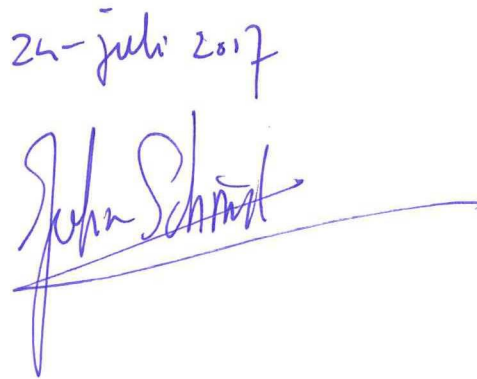 24-juli 2017
John Schmidt